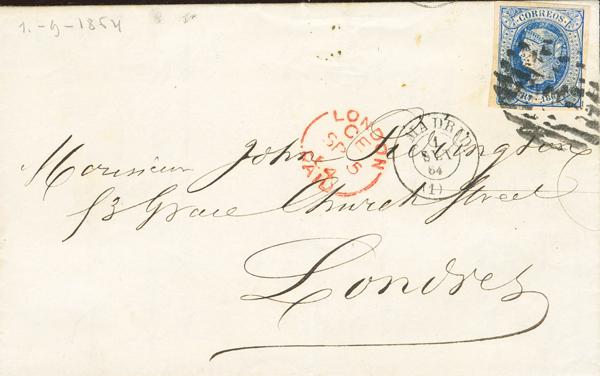 1.-9-1864
CORREOS
LONDON
CE
SP 5
64
PAID
MADRID
1
SET
64
(1)
Monsieur John
53 Grace Church Street
Londres